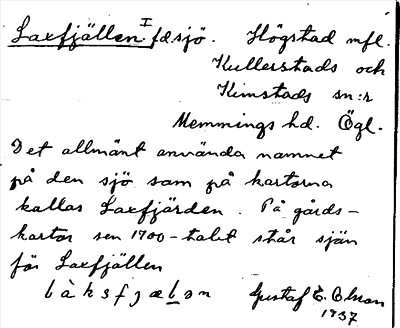 Laxfjällen I fd.sjö. Högstad mfl.
Kullerstads och
Kimstads sn:r
Memmings hd. Ögl.
Det allmänt använda namnet
på den sjö som på kartorna
kallas Laxfjärden. På gårds-
kartor sen 1700-talet står sjön
för Laxfjällen
làksfjæḷən Gustaf E. Olson
1937